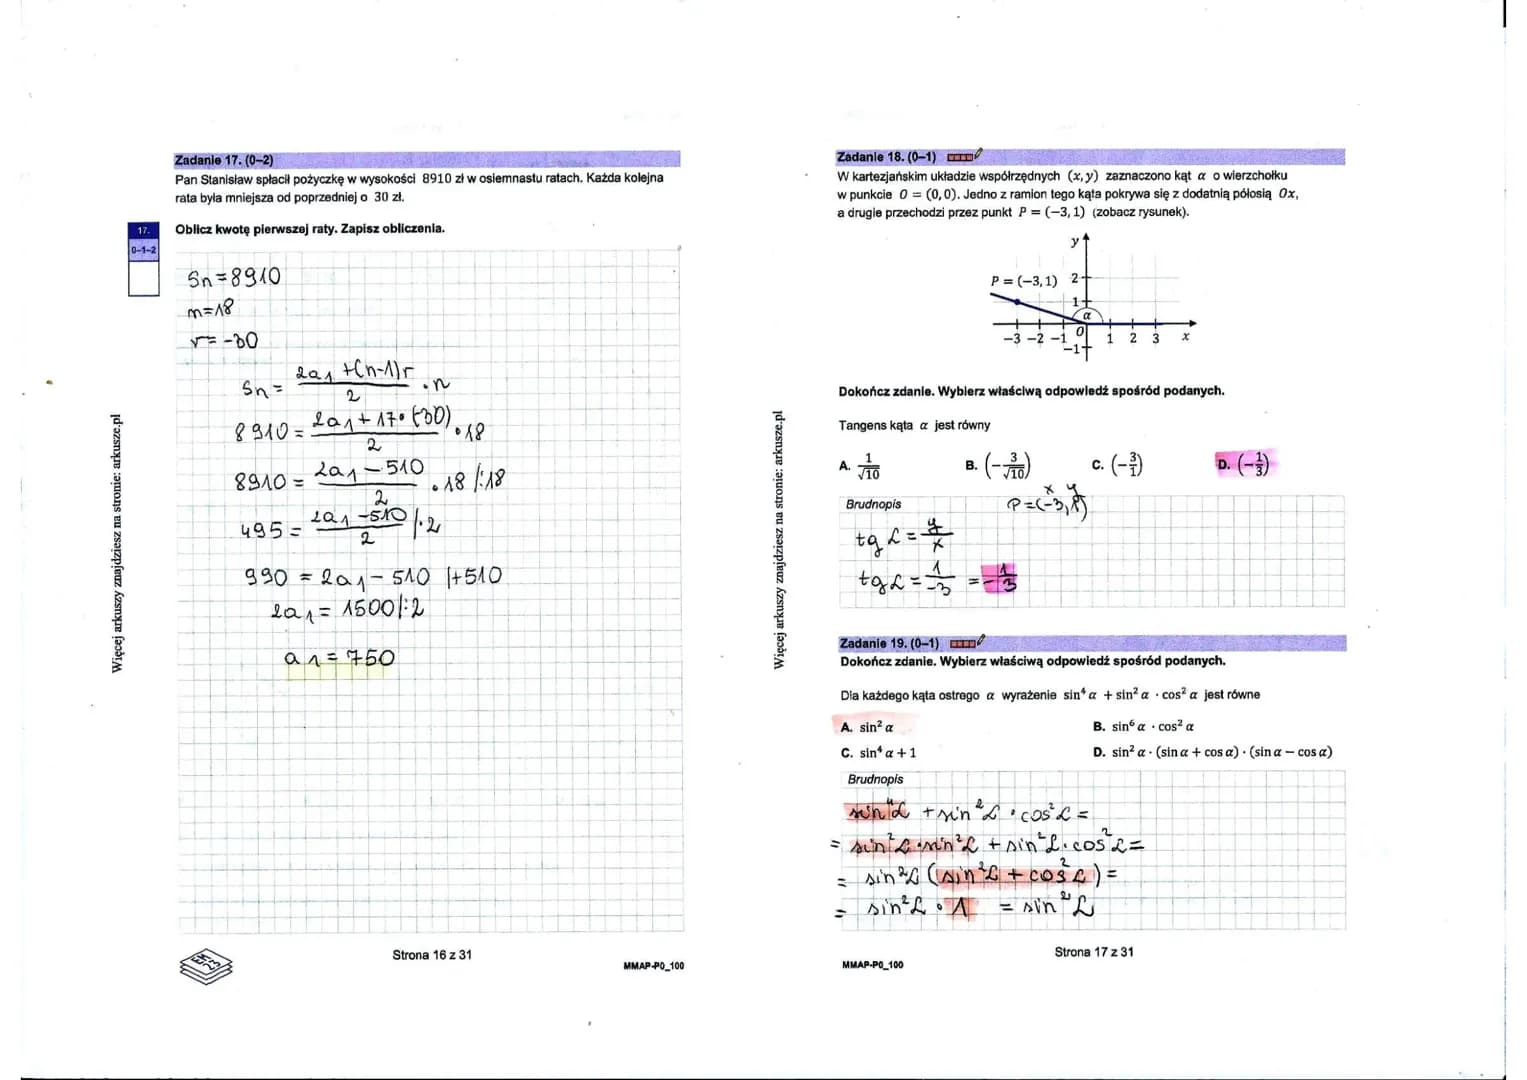 Zadanie 17. (0–2)
Pan Stanisław spłacił pożyczkę w wysokości 8910 zł w osiemnastu ratach. Każda kolejna
rata była mniejsza od poprzedniej o 30 zł.
17.
0–1–2
Oblicz kwotę pierwszej raty. Zapisz obliczenia.
Sn = 8910
n = 18
r = -30
Sn = \frac{2a₁ + (n-1)r}{2} · n
8910 = \frac{2a₁ + 17 · (-30)}{2} · 18
8910 = \frac{2a₁ - 510}{2} · 18 /:18
495 = \frac{2a₁ - 510}{2} /·2
990 = 2a₁ - 510 |+510
2a₁ = 1500 /:2
a₁ = 750
Więcej arkuszy znajdziesz na stronie: arkusze.pl
Strona 16 z 31
MMAP-P0_100
Zadanie 18. (0–1)
W kartezjańskim układzie współrzędnych (x, y) zaznaczono kąt α o wierzchołku
w punkcie O = (0, 0). Jedno z ramion tego kąta pokrywa się z dodatnią półosią Ox,
a drugie przechodzi przez punkt P = (−3, 1) (zobacz rysunek).
y
P = (−3, 1) 2
1
α
−3 −2 −1 0 1 2 3 x
−1
Dokończ zdanie. Wybierz właściwą odpowiedź spośród podanych.
Tangens kąta α jest równy
A. \frac{1}{√10} B. (−\frac{3}{√10}) C. (−\frac{3}{1}) D. (−\frac{1}{3})
Brudnopis
x y
P = (-3, 1)
tg α = \frac{y}{x}
tg α = \frac{1}{-3} = -\frac{1}{3}
Zadanie 19. (0–1)
Dokończ zdanie. Wybierz właściwą odpowiedź spośród podanych.
Dla każdego kąta ostrego α wyrażenie sin⁴ α + sin² α · cos² α jest równe
A. sin² α B. sin⁶ α · cos² α
C. sin⁴ α + 1 D. sin² α · (sin α + cos α) · (sin α − cos α)
Brudnopis
sin⁴α + sin²α · cos²α =
= sin²α · sin²α + sin²α · cos²α =
= sin²α (sin²α + cos²α) =
= sin²α · 1 = sin²α
Więcej arkuszy znajdziesz na stronie: arkusze.pl
Strona 17 z 31
MMAP-P0_100